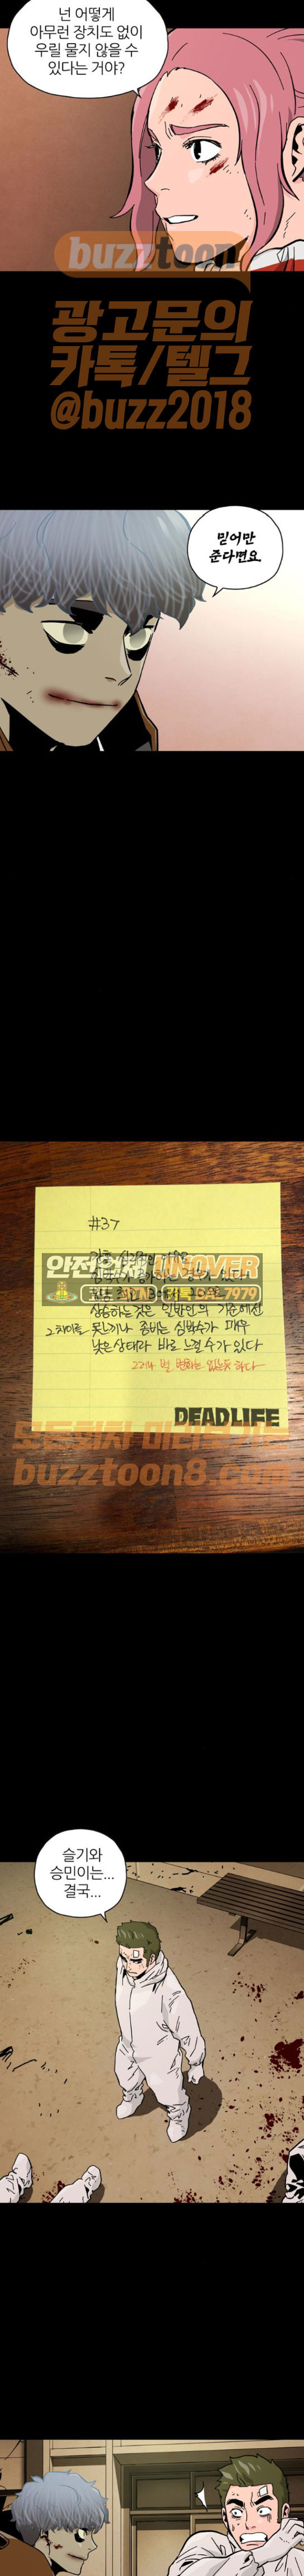 넌 어떻게
아무런 장치도 없이
우릴 물지 않을 수
있다는 거야?
buzztoon
광고문의
카톡/텔그
@buzz2018
믿어만
준다면요.
#37
안전업체 UNOVER
7979
상승하는것은 일반인의 기준에선
그 차이를 못느끼나 좀비는 심박수가 매우
낮은 상태라 바로 느낄수가 있다
별 변화는 없는듯 하다
DEAD LIFE
buzztoon8.com
슬기와
승민이는...
결국...